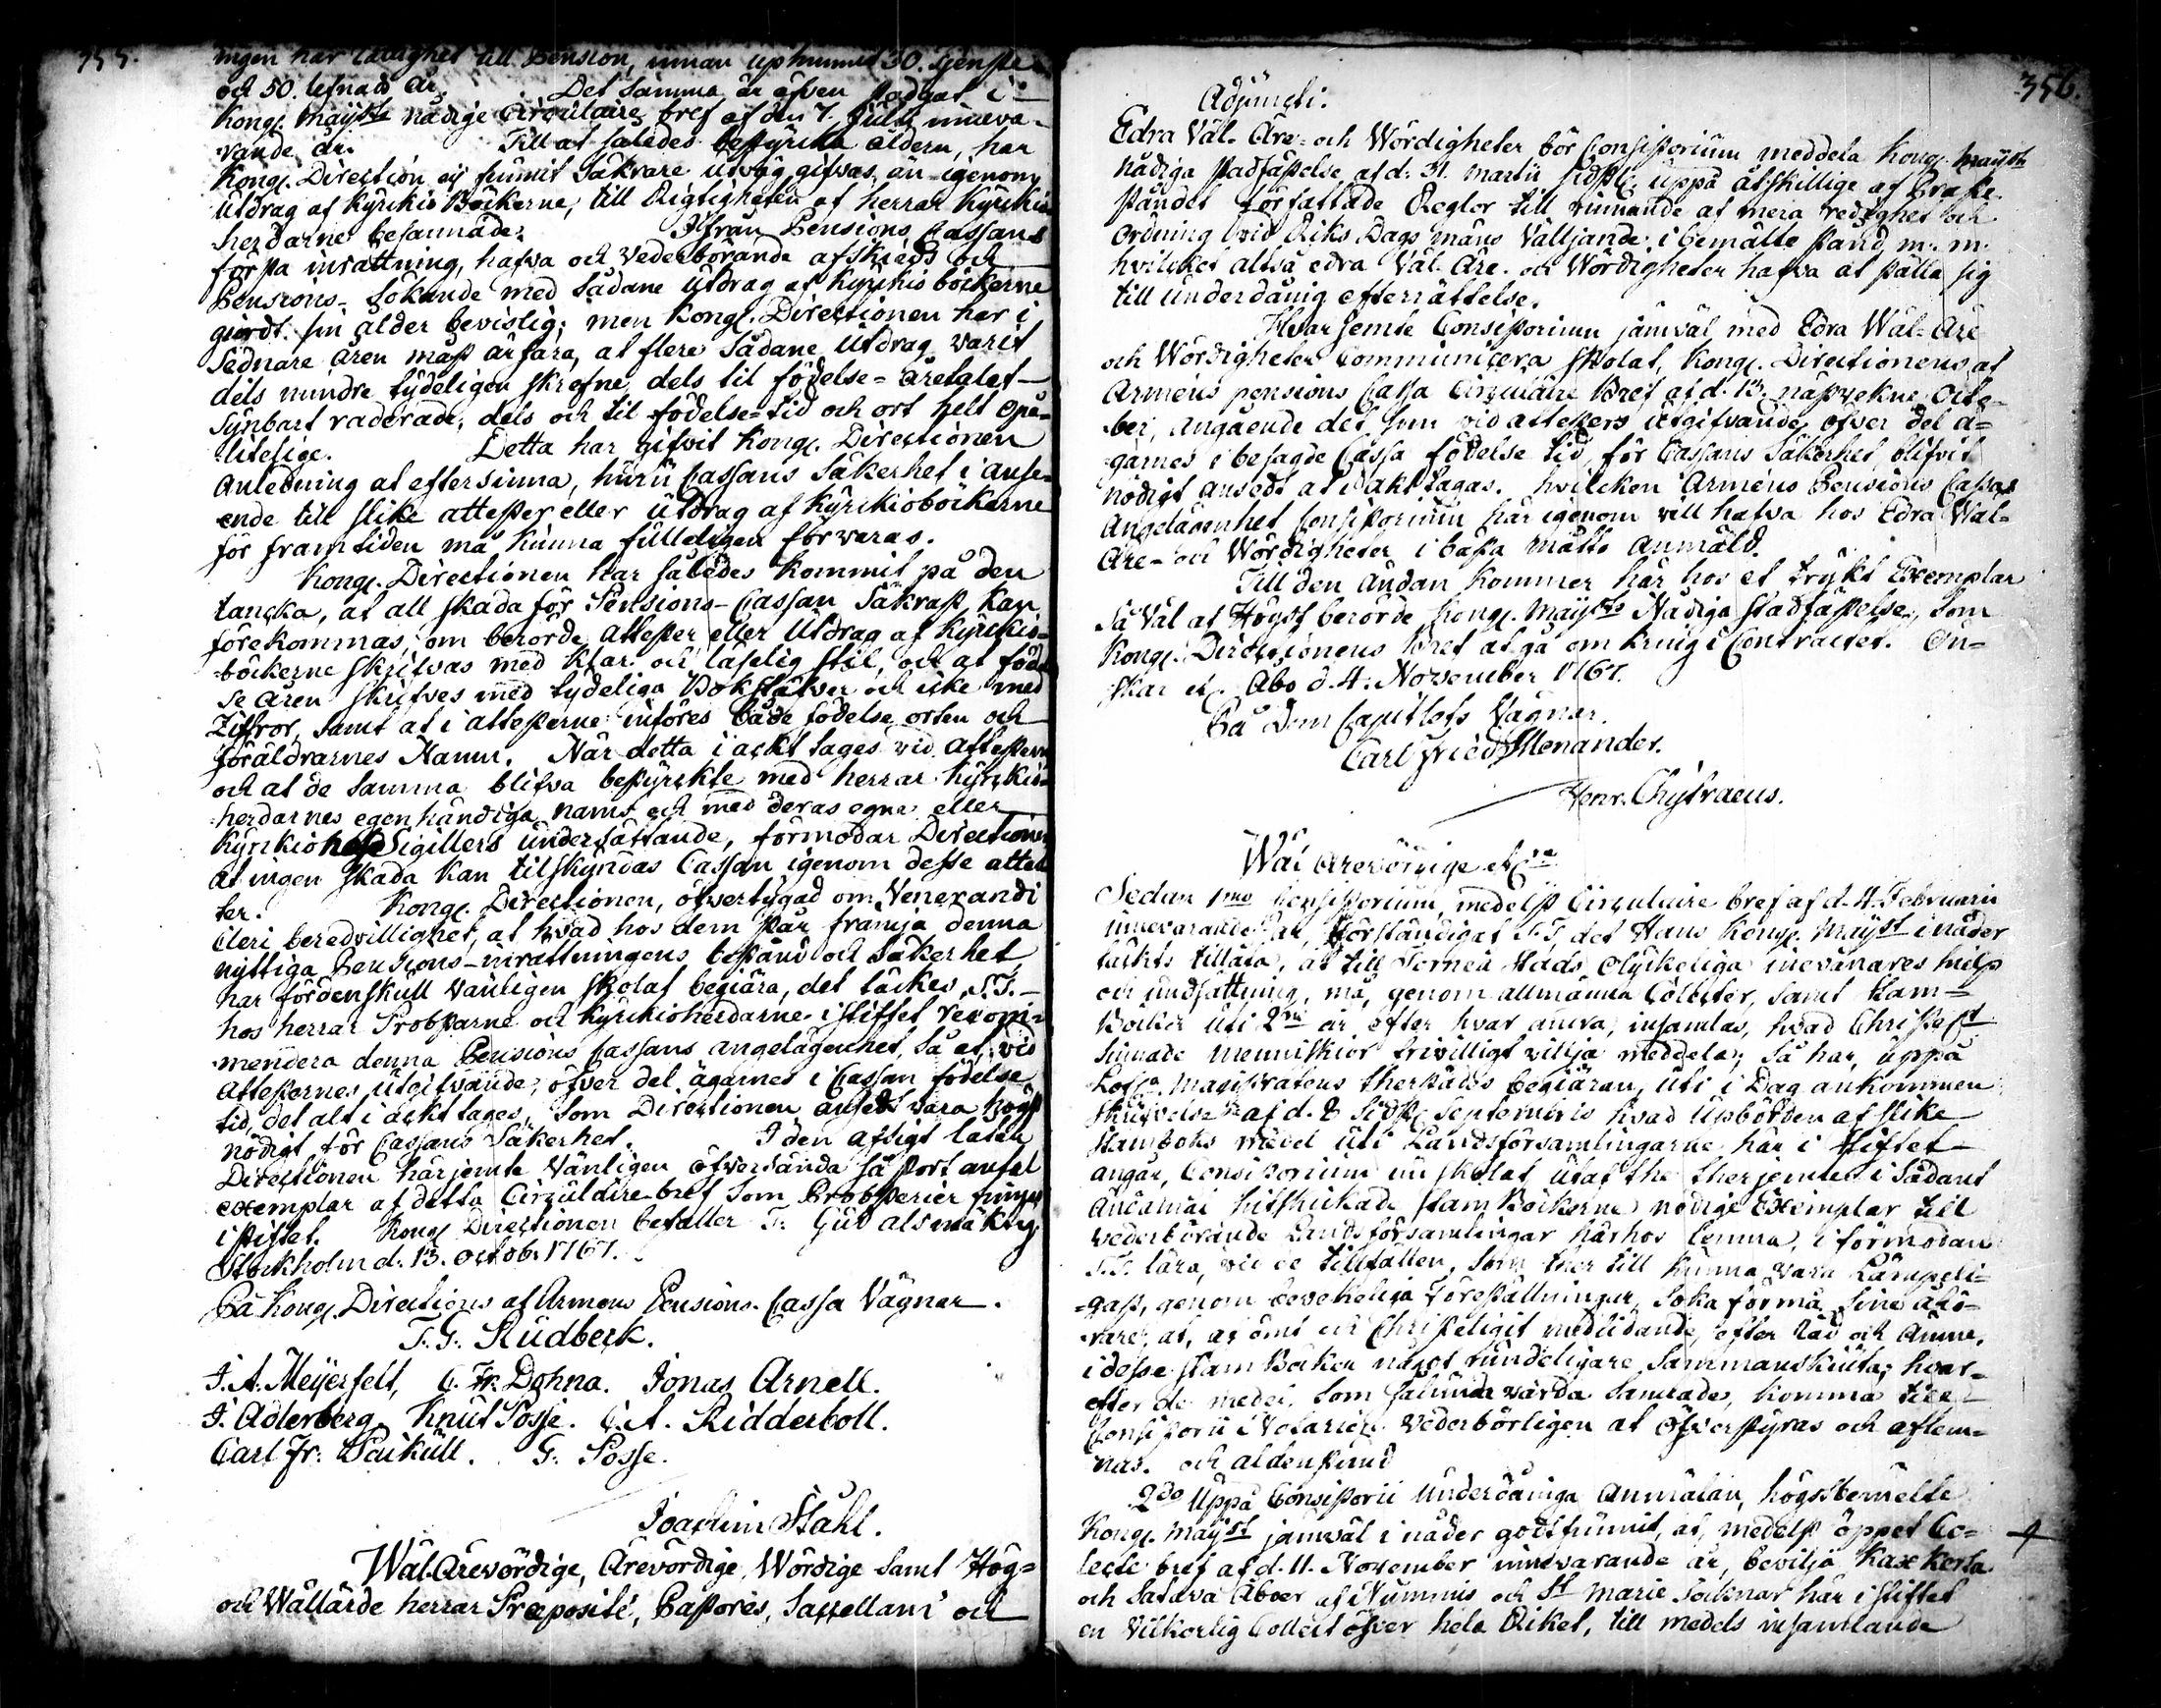 355.
ingen har rättighet till Pension, innan uphunnit 30. Tjenste
och 50. lefnads år. Det samma är äfven stadgat i
Kongl. Maij:sts nådige Circulaire bref af den 7. Julii inneva-
rande år. Till at således bestyrka åldern, har
Kongl. Direction ej funnit säkrare utväg gifvas, än igenom
utdrag af Kyrkio Böckerne, till Rigtigheten af herrar Kyrkio
herdarne besannade. Ifrån Pensions Cassans
första inrättning, hafva och vederbörande afskieds och
Pensions-sökande med sådane utdrag af Kyrkio böckerne
giordt sin ålder bevislig; men Kongl. Directionen har i
sednare åren måst ärfara, at flere sådane utdrag varit
dels mindre tydeligen skrefne, dels til födelse-åretalet
synbart raderade, dels och til födelse-tid och ort helt opå-
litelige. Detta har gifvit Kongl. Directionen
anledning at eftersinna, huru Cassans säkerhet i anse-
ende till slike attester eller utdrag af Kyrkioböckerne
för framtiden må kunna fulleligen förvaras.
Kongl. Directionen har således kommit på den
tancka, at all skada för Pensions-Cassan säkrast kan
förekommas, om berörde attester eller utdrag af Kyrkio-
böckerne skrifvas med klar och läselig stil, och at födel
se åren skrifves med tydeliga Bokstäfver och icke med
Ziffror, samt at i attesterne införes både födelse orten och
föräldrarnes Namn. När detta i ackt tages vid attesterne
och at de samma blifva bestyrkte med herrar Kyrkio-
herdarnes egenhändiga namn och med deras egne eller
Kyrkions Sigillers undersättande, förmodar Directionen
at ingen skada kan tilskyndas Cassan igenom desse attes
ter. Kongl. Directionen, öfvertygad om Venerandi
Cleri beredvillighet, at hvad hos dem står främja denna
nyttiga Pensions-inrättningens bestånd och säkerhet
har fördenskull vänligen skolat begiära, det täckes, T.T.
hos herrar Probstarne och Kyrkioherdarne i stiftet recom-
mendera denna Pensions Cassans angelägenhet, så at vid
Attesternes utgifvande, öfver del ägarnes i Cassan födelse
tid, det alt i ackt tages, som Directionen ansedt vara högst
nödigt för Cassans säkerhet. I den afsigt låter
Directionen härjemte vänligen öfversända så stort antal
exemplar af detta Circulaire bref som Probsterier finnes
i stiftet. Kongl. Directionen befaller T. Gud alsmäktig
Stockholm d. 13. octob. 1767.
På Kongl. Directions af Armens Pensions-Cassa Vägnar.
T. G. Rudbeck.
J. A. Meijerfelt, C. Fr. Dohna. Jonas Arnell.
J. Adlerberg. Knut Posse. C. A. Ridderboll.
Carl Fr: Paikull. G. Posse.
Joachim Ståhl.
Wäl-Ärevördige, Ärevördige, Wördige samt Hög-
och Wällärde herrar Præposité, Pastores, Sacellani och
356.
Adjuncti.
Edra Väl- Äre- och Wördigheter bör Consistorium meddela Kongl. Maij:sts
nådiga stadfästelse af d. 31. martii sidstl. uppå åtskillige af Preste
ståndet författade Reglor till vinnande af mera redighet och
ordning vid Riks Dags mäns Välljande i bemälte stånd m. m.
hvilcket altså edra Väl- Äre- och Wördigheter hafva at ställa sig
till underdånig efterrättelse.
Hvarjemte Consistorium jämväl med Edra Wäl- Äre
och Wördigheter Communicera skolat, Kongl. Directionens af
Armens pensions Cassa Circulaire Bref af d. 13. nästvekne Octo-
ber, angående det, som vid attesters utgifvande öfver del ä-
garnes i besagde Cassa födelse tid, för Cassans säkerhet, blifvit
nödigt ansedt at i akt tagas. hvilcken Armens Pensions Cassas
Angelägenhet Consistorium här igenom vill hafva hos Edra Wäl-
Äre- och Wördigheter i bästa måtto anmäld.
Till den ändan kommer här hos et trykt Exemplar
så väl af Högst berörde Kongl. Maij:sts Nådiga stadfästelse, som
Kongl. Directionens bref at gå omkring i Contractet. Ön-
skar etc. Åbo d. 4. November 1767.
På Dom Capitlets Vägnar.
Carl Fried. Mennander.
Henr. Chytraeus.
Wäl Ärevördige etc.
Sedan 1mo Consistorium medelst Circulaire bref af d. 4. Februarii
innevarande år, förständigat T.T. det Hans Kongl. Maij:st i nåder
täckts tillåta, at till Torneå stads olyckeliga innevånares hielp
och undsättning, må, genom allmänna Collecter, samt stam-
Böcker uti 2ne år efter hvar annra, insamlas, hvad Christeligt
sinnade menniskior frivilligt villja meddela; så har, uppå
Loff. Magistratens therstädes begiäran, uti i dag ankommen
skrifvelse af d. 8 sidstl. Septembris hvad upbörden af slike
stamboks medel uti Landsförsamlingarne här i stiftet
angår, Consistorium nu skolat utaf the therjemte i sådant
ändamål hitskickade stam Böckerne nödige Exemplar til
vederbörande Landsförsamlingar härhos lemna, i förmodan
T.T. lära, vid de tillfällen, som ther till kunna vara lämpeli-
gast, genom bevekeliga föreställningar, söka förmå sine åhö-
rare, at, af ömt och Christeligit medlidande, efter råd och ämne,
i desse stam Böcker något rundeligare sammanskiuta; hvar-
efter de medel, som salunda värda samlade, komma till
Consistorii Notarien vederbörligen at öfverstyras och aflem-
nas. och aldenstund
2do Uppå Consistorii underdåniga anmälan, högstbemelte
Kongl. Maij:st jämväl i nåder godtfunnit, at, medelst öppet Co-
lecte bref af d. 11. November innevarande år, bevilja
och Satava Åboer af Nummis och St. Marie Soknar här i stiftet
en Villkorlig Collect öfver hela Riket, till medels insamlande